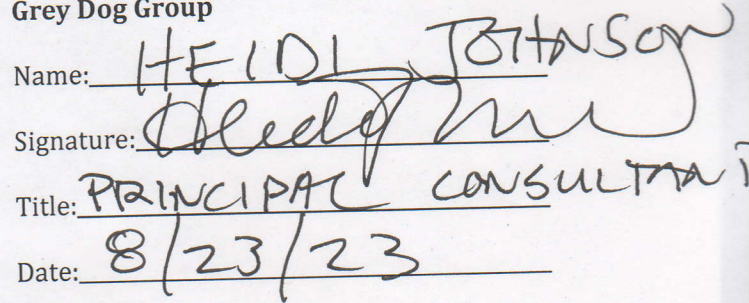 Grey Dog Group
Name: HEIDI JOHNSON
Signature:
Title: PRINCIPAL CONSULTANT
Date: 8/23/23